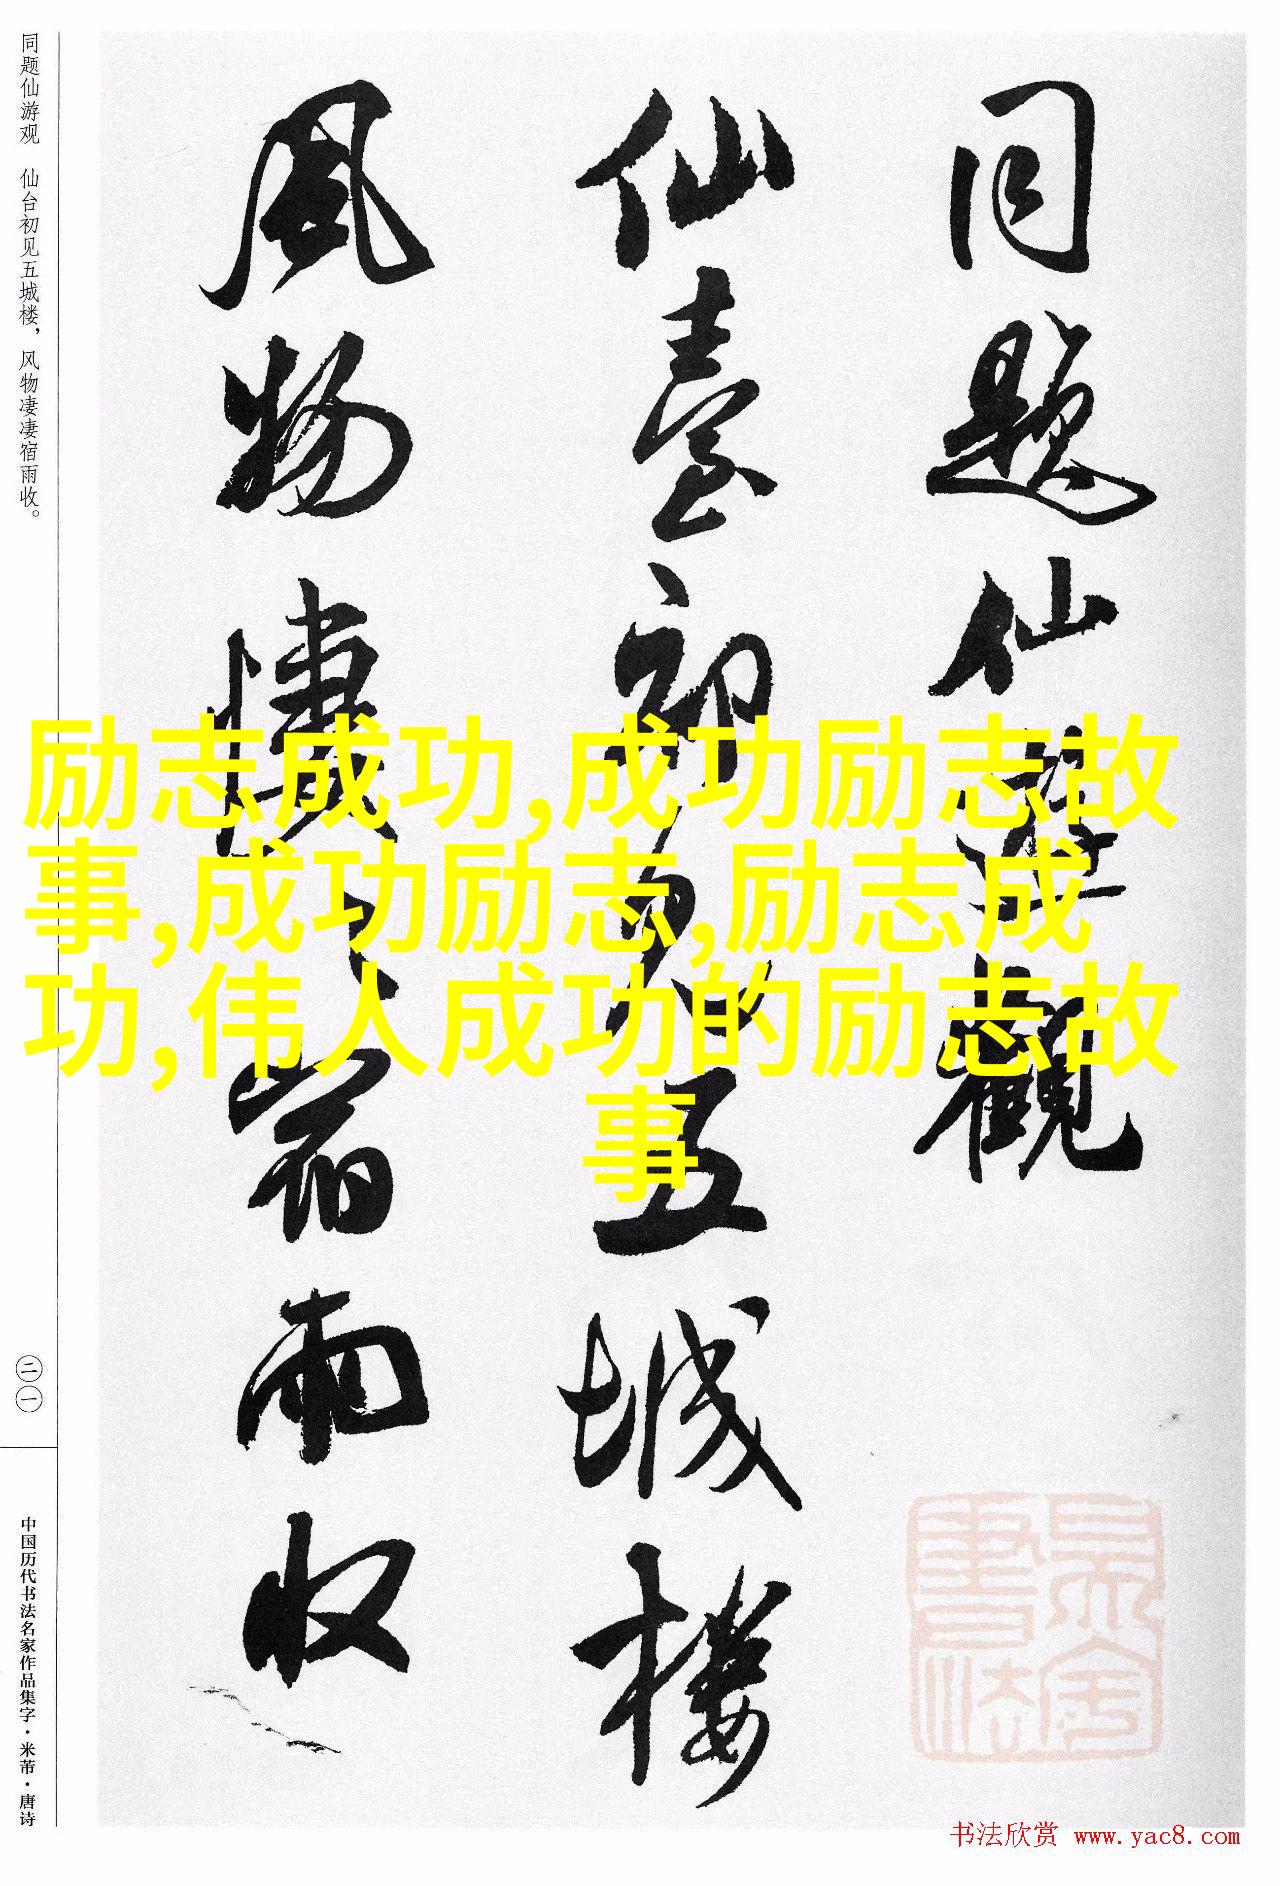 同题仙游观 仙台初见五城楼，风物凄凄宿雨收。
二一
中国历代书法名家作品集字·米芾·唐诗
同题仙游觀
仙臺初见五城楼
風物悽〻宿雨收
励志成功,成功励志故
事,成功励志,励志成
功,伟人成功的励志故
事
书法欣赏 www.yac8.com